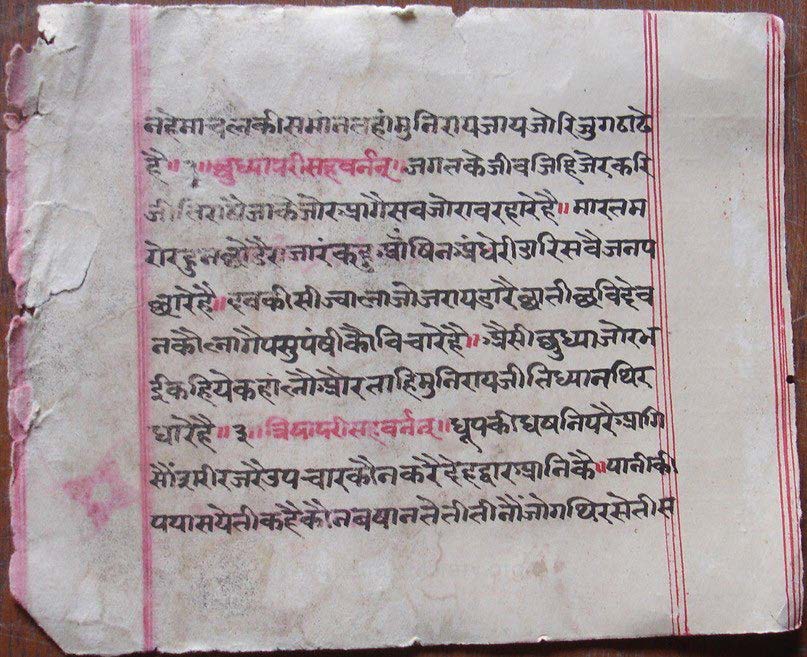 नहेमाचलकीसमांनतहांमुनिरायजायजोरिजुगठाढे
है॥२॥क्षुध्यापरीसहवर्ननं॥जगतकेजीवजिहिजेरकरि
जीतिराषेजाकेजोरआगैसवजोरावरहारेहै॥मारतम
रोरहुनछोडैराजारंकहूआंषिनअंधेरीआरिसवैजनप
छारेहै॥दवकीसीज्वालाजोजरायडारैछातीछविदेव
नकौलागैपसुपंषीकौविचारेहै॥ऐसीछुध्याजोरभ
ईकहियेकहांलौऔरताहिमुनिरायजीतिध्यानथिर
धारेहै॥३॥त्रिषापरीसहवर्ननं॥धूपकीधषनिपरैआगि
सौंसरीरजरैउपचारकौनकरैदेहद्वारआनिकै॥पानीकी
पयासयेतीकहैकौनबषानतैतीतीनौंजोगथिरसेतीस